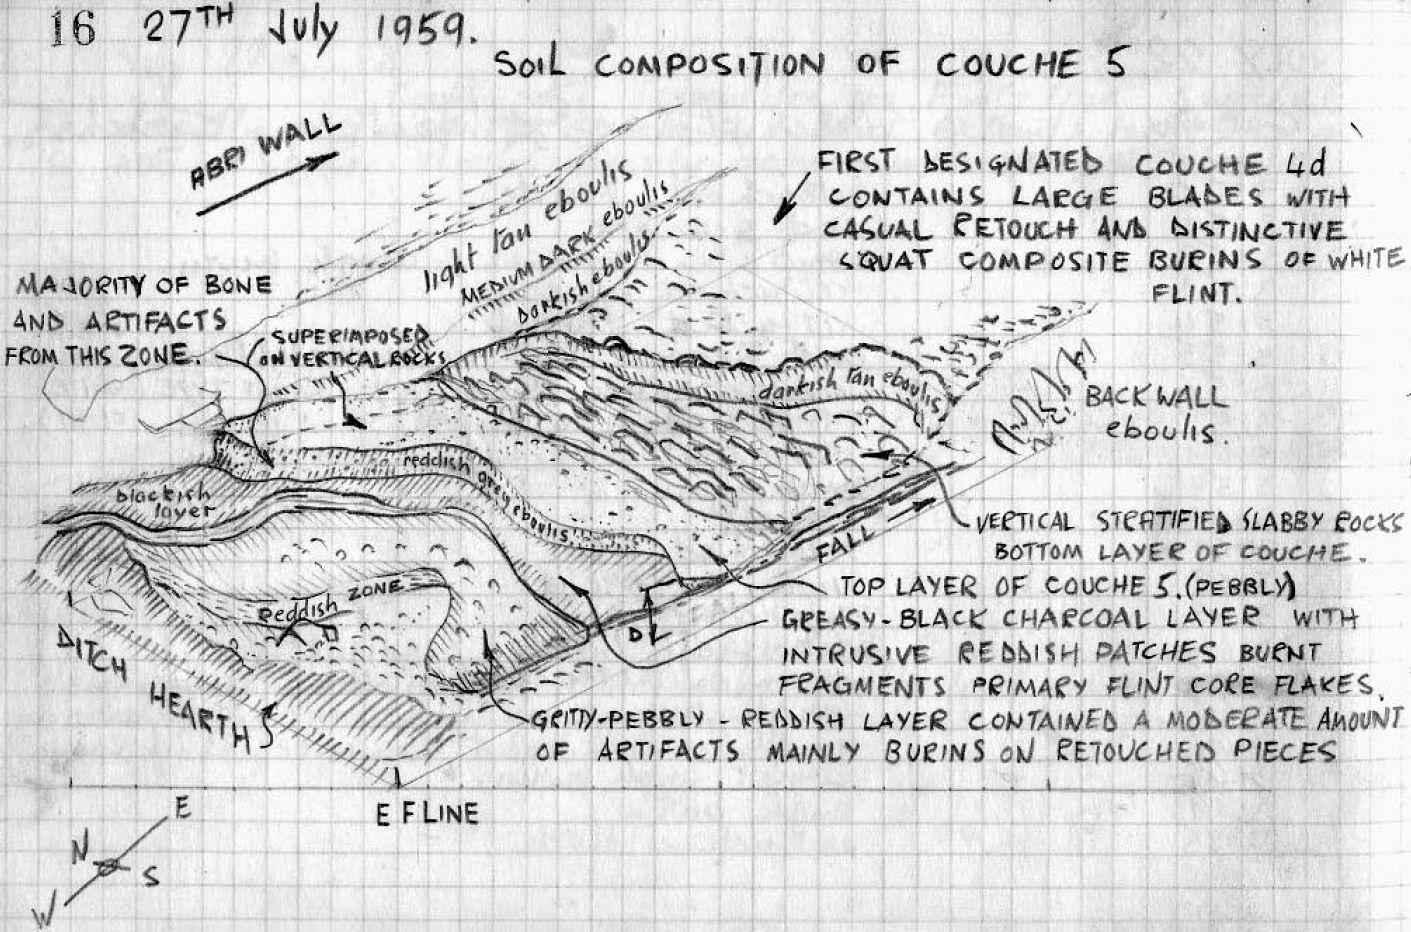 16 27TH July 1959.
SOIL COMPOSITION OF COUCHE 5
ABRI WALL
FIRST DESIGNATED COUCHE 4d
CONTAINS LARGE BLADES WITH
CASUAL RETOUCH AND DISTINCTIVE
SQUAT COMPOSITE BURINS OF WHITE
FLINT.
light tan eboulis
MEDIUM DARK eboulis
Darkish eboulis
MAJORITY OF BONE
AND ARTIFACTS
FROM THIS ZONE.
SUPERIMPOSED
ON VERTICAL ROCKS
darkish tan eboulis
BACK WALL
eboulis.
reddish grey eboulis
blackish
layer
VERTICAL STRATIFIED SLABBY ROCKS
BOTTOM LAYER OF COUCHE.
FALL
TOP LAYER OF COUCHE 5. (PEBBLY)
reddish ZONE
D
GREASY-BLACK CHARCOAL LAYER WITH
INTRUSIVE REDDISH PATCHES BURNT
FRAGMENTS PRIMARY FLINT CORE FLAKES.
DITCH
HEARTH
GRITTY-PEBBLY - REDDISH LAYER CONTAINED A MODERATE AMOUNT
OF ARTIFACTS MAINLY BURINS ON RETOUCHED PIECES
E F LINE
E
N
S
W